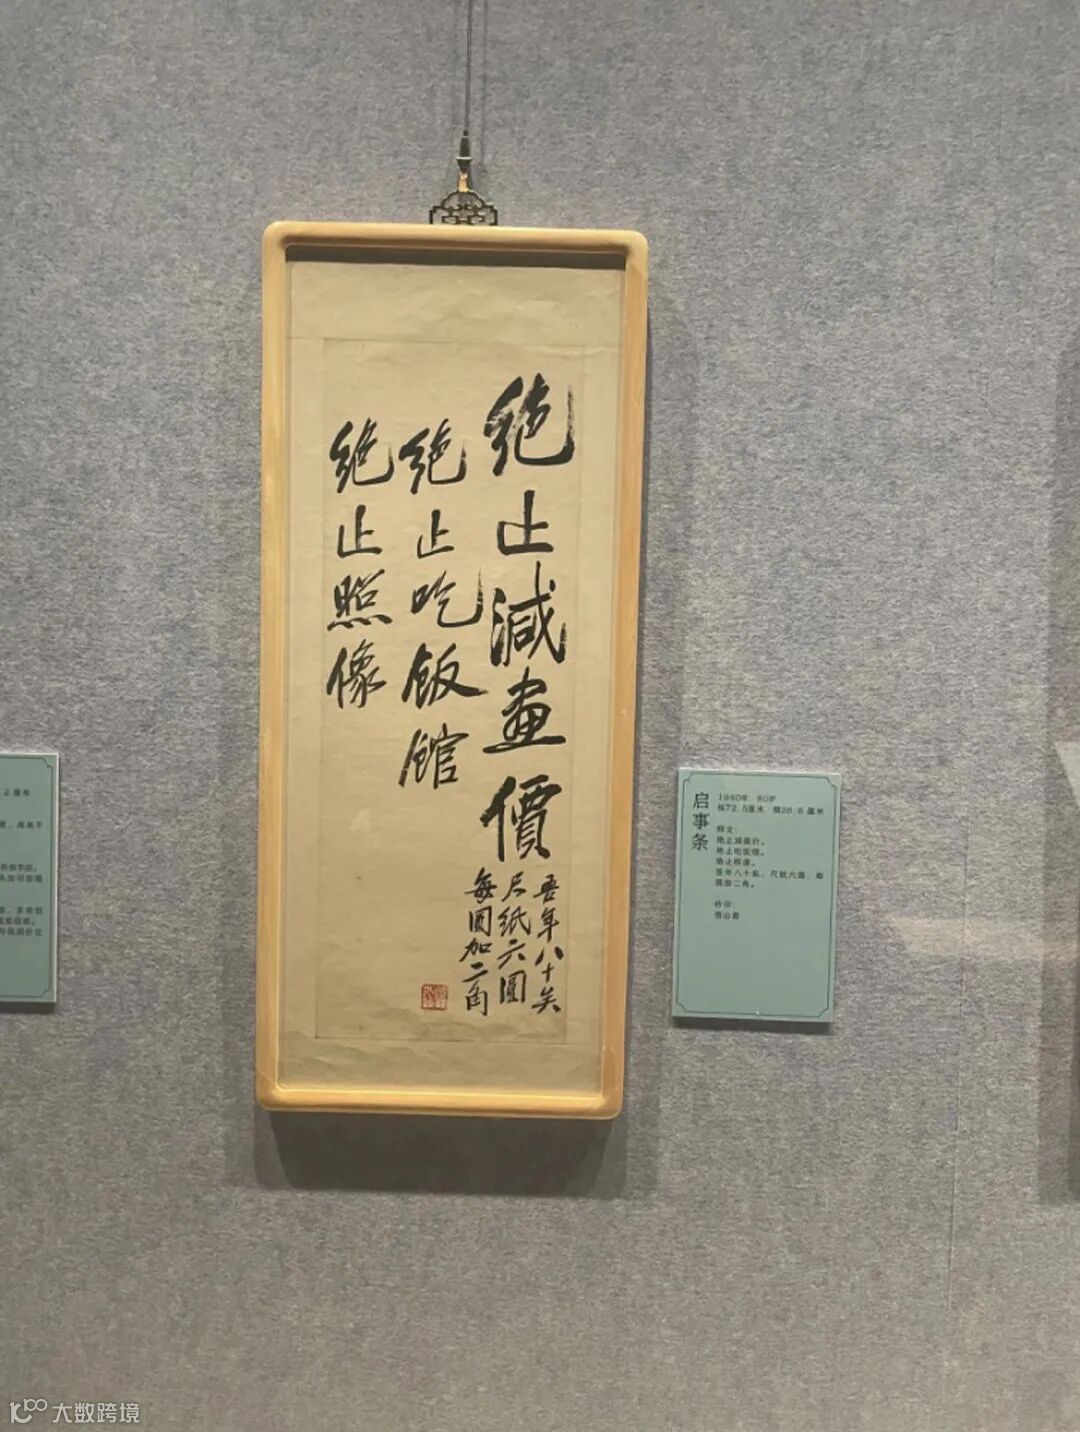 绝止減畫價
吾年八十矣
尺紙六圓
每圓加二角
绝止吃飯館
绝止照像
启事条
1940年 80岁
纵72.5厘米 横26.6厘米
释文：
绝止减画价。
绝止吃饭馆。
绝止照像。
吾年八十矣，尺纸六圆，每
圆加二角。
钤印：
借山翁
2厘米
大数跨境